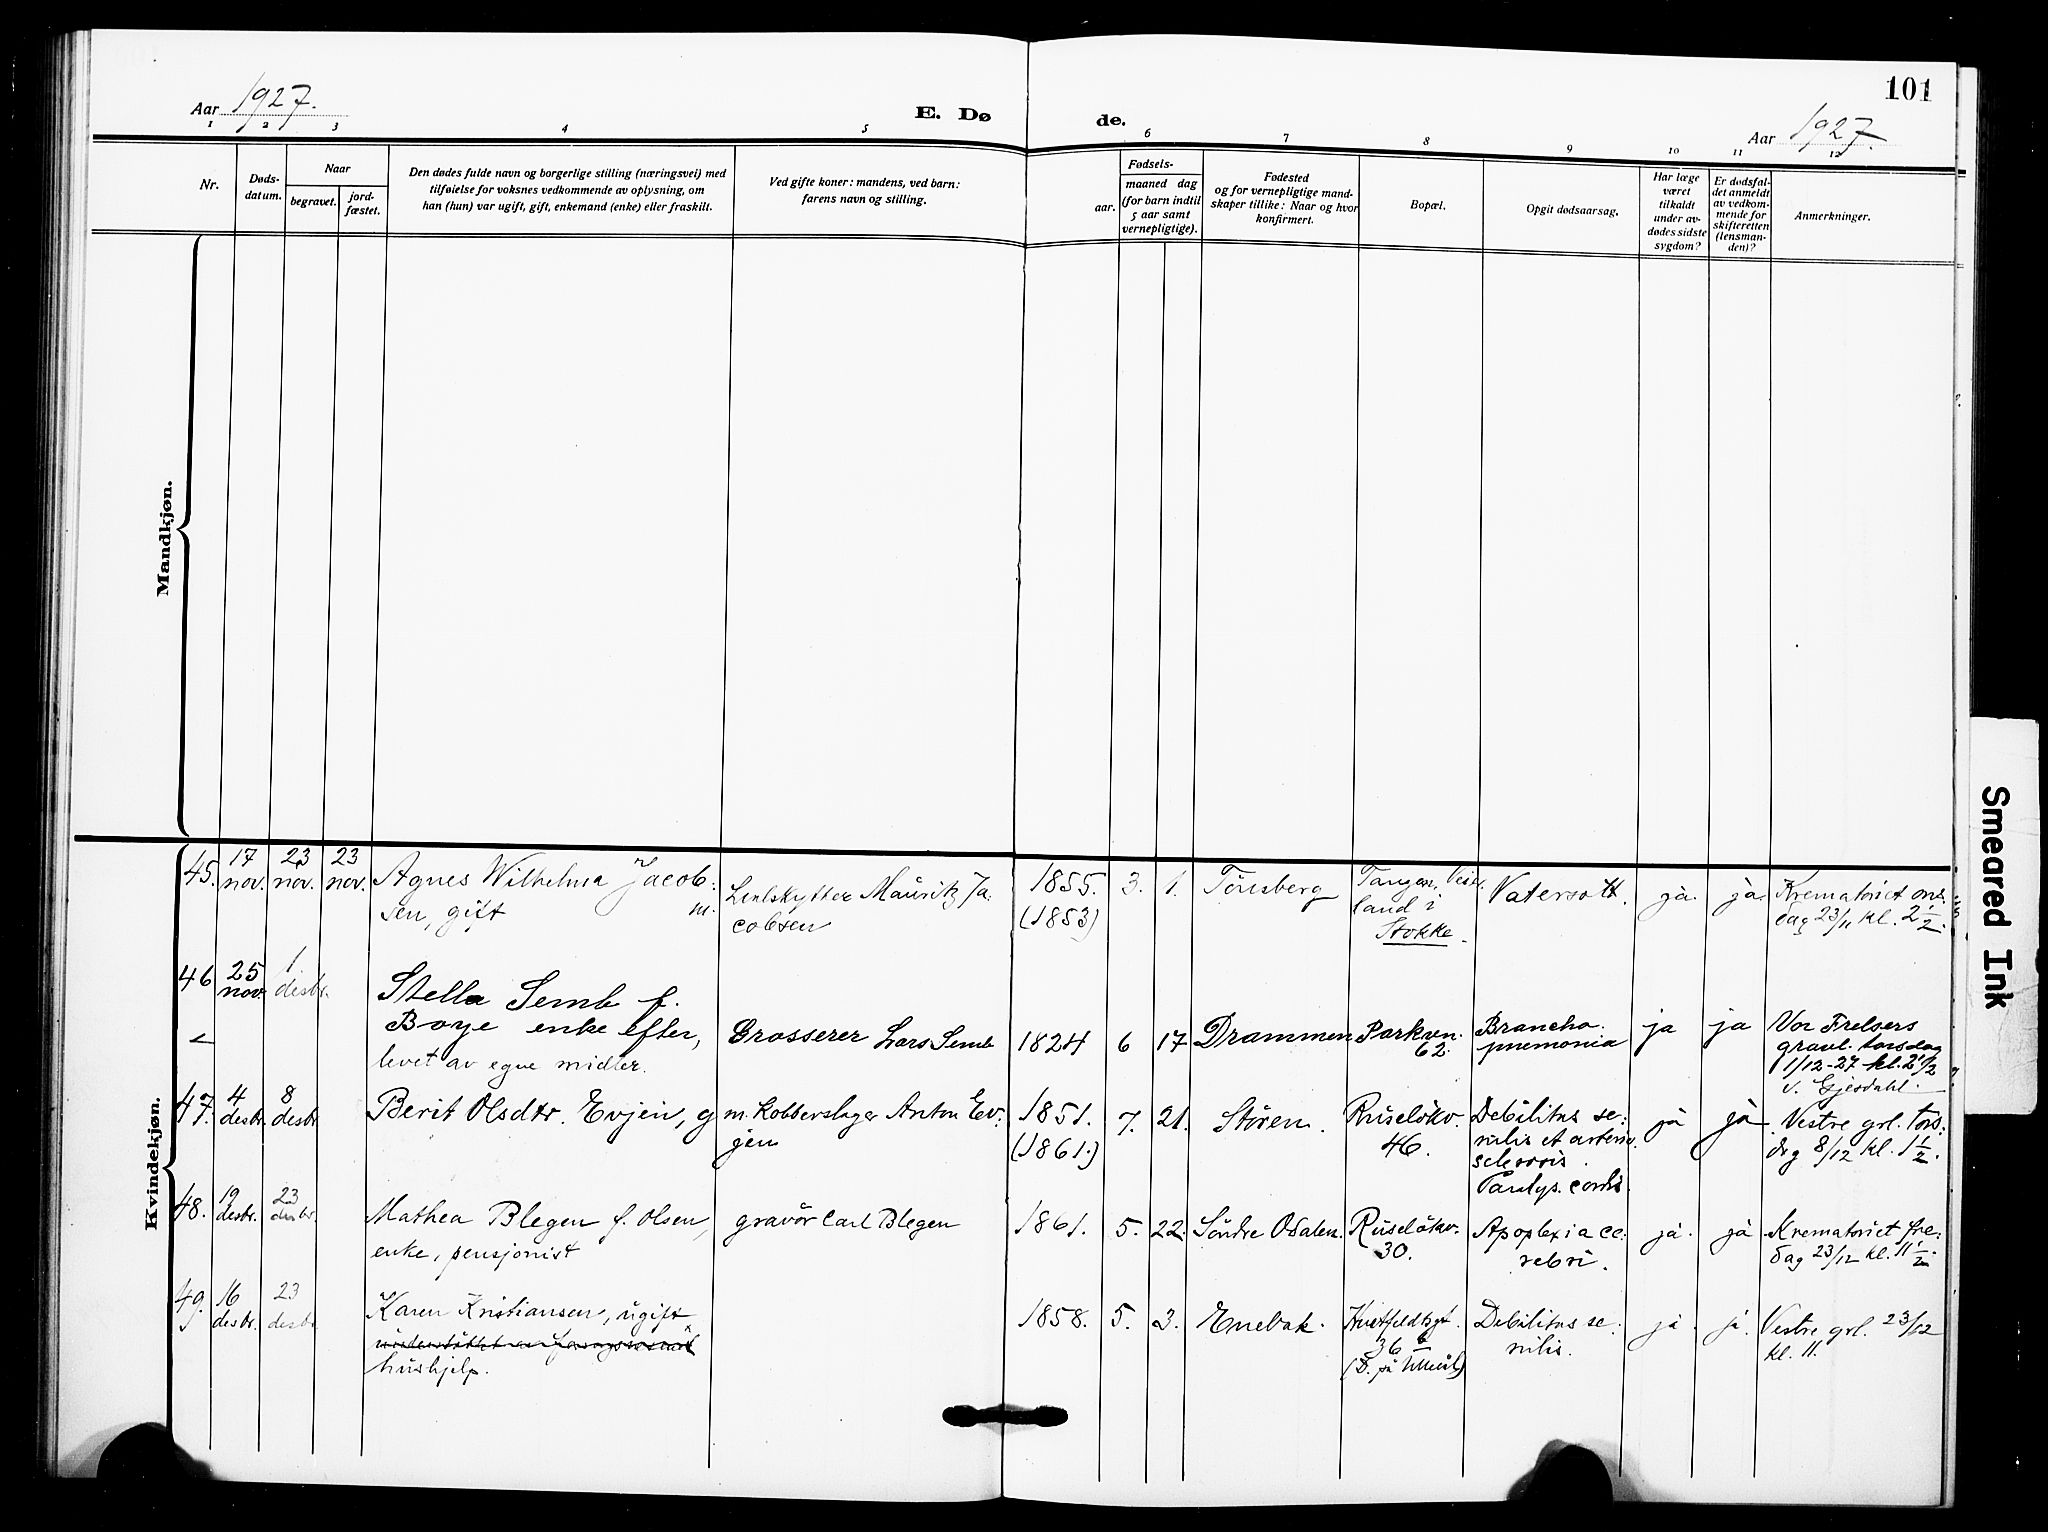 101
Aar 1927.
E. Dø
de.
Aar 1927.
1 2 3 4 5 6 7 8 9 10 11 12
Nr.
Døds-
datum.
Naar
begravet.
jord-
fæstet.
Den dødes fulde navn og borgerlige stilling (næringsvei) med
tilføielse for voksnes vedkommende av oplysning, om
han (hun) var ugift, gift, enkemand (enke) eller fraskilt.
Ved gifte koner: mandens, ved barn:
farens navn og stilling.
Fødsels-
aar.
maaned dag
(for barn indtil
5 aar samt
vernepligtige).
Fødested
og for vernepligtige mand-
skaper tillike: Naar og hvor
konfirmert.
Bopæl.
Opgit dødsaarsag.
Har læge
været
tilkaldt
under av-
dødes sidste
sygdom?
Er dødsfal-
det anmeldt
av vedkom-
mende for
skifteretten
(lensman-
den)?
Anmerkninger.
Mandkjøn.
Kvindekjøn.
45.
17
nov.
23
nov.
23
nov.
Agnes Wilhelma Jacob-
sen, gift
m.
Mauritz Ja-
cobsen
1855.
(1853)
3. 1.
Tönsberg
Tangen,
land i
Stokke.
Vatersott.
ja.
ja.
Krematoriet ons-
dag 23/11 kl. 2 1/2.
46
25
nov.
1
desbr.
Stella Semb f.
Boye enke efter,
levet av egne midler.
Grosserer Lars Semb
1824 6 17
Drammen
Parkven.
62.
Broncho.
pnemonia
ja
ja
Vor Frelsers
gravl. torsdag
1/12-27 kl. 2 1/2
v. Gjesdahl.
47.
4
desbr.
8
desbr
Berit Olsdtr. Evjen, g
m. Kobberslager Anton Ev-
jen
1851.
(1861.)
7. 21.
Stören.
Ruselökv.
46.
Debilitas se-
nilis et arterio
sclerosis.
Paralys. cordis.
ja
ja
Vestre grl. tors-
dag 8/12 kl. 1 1/2.
48.
19
desbr.
23
desbr.
Mathea Blegen f. Olsen,
enke, pensjonist
gravör Carl Blegen
1861. 5. 22.
Söndre Odalen.
Ruselökv.
30.
Apoplexia ce-
rebri.
ja.
ja
Krematoriet fre-
dag 23/12 kl. 11 1/2.
49.
16
desbr.
23
desbr
Karen Kristiansen, ugift
hushjelp.
1858. 5. 3.
Enebak.
Huitfeldtsgt.
36
(D. på Ullevål)
Debilitas se-
nilis.
ja.
ja.
Vestre grl. 23/12
kl. 11.
Smeared Ink